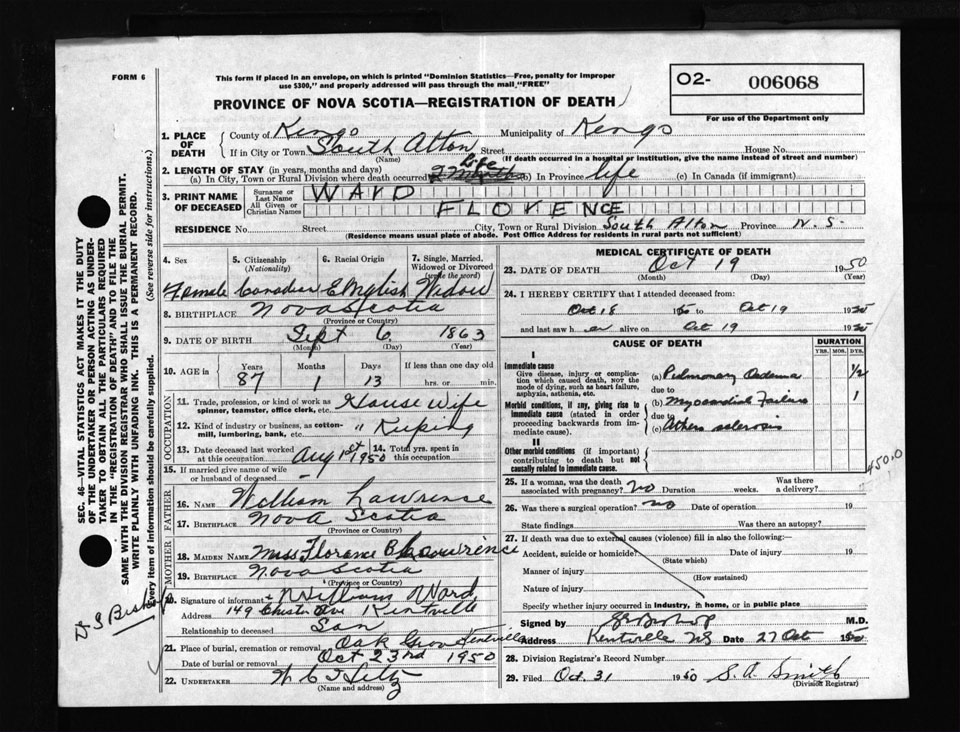 FORM 6
This form if placed in an envelope, on which is printed "Dominion Statistics—Free, penalty for improper
use $300," and properly addressed will pass through the mail "FREE"
O2- 006068
For use of the Department only
PROVINCE OF NOVA SCOTIA—REGISTRATION OF DEATH
1. PLACE OF DEATH
County of Kings Municipality of Kings
If in City or Town South Alton Street House No.
(Name) (If death occurred in a hospital or institution, give the name instead of street and number)
2. LENGTH OF STAY (in years, months and days)
(a) In City, Town or Rural Division where death occurred life (b) In Province life (c) In Canada (if immigrant)
3. PRINT NAME OF DECEASED
Surname or Last Name WARD
All Given or Christian Names FLORENCE
RESIDENCE No. Street City, Town or Rural Division South Alton Province N.S.
(Residence means usual place of abode. Post Office Address for residents in rural parts not sufficient)
4. Sex
5. Citizenship (Nationality)
6. Racial Origin
7. Single, Married, Widowed or Divorced (write the word)
Female Canadian English Widow
8. BIRTHPLACE Nova Scotia
(Province or Country)
9. DATE OF BIRTH Sept 6 1863
(Month) (Day) (Year)
10. AGE in Years Months Days If less than one day old
87 1 13 hrs. or min.
OCCUPATION
11. Trade, profession, or kind of work as spinner, teamster, office clerk, etc. House Wife
12. Kind of industry or business, as cotton-mill, lumbering, bank, etc. " Kieping
13. Date deceased last worked at this occupation Aug 1st 1950
14. Total yrs. spent in this occupation
15. If married give name of wife or husband of deceased
FATHER
16. NAME William Lawrence
17. BIRTHPLACE Nova Scotia
(Province or Country)
MOTHER
18. MAIDEN NAME Miss Florance Lawrence
19. BIRTHPLACE Nova Scotia
(Province or Country)
20. Signature of informant William Ward
Address 149 Chester Ave Kentville
Relationship to deceased Son
21. Place of burial, cremation or removal Oak Grove Kentville
Date of burial or removal Oct 23nd 1950
22. UNDERTAKER W C Hiltz
(Name and address)
MEDICAL CERTIFICATE OF DEATH
23. DATE OF DEATH Oct 19 1950
(Month) (Day) (Year)
24. I HEREBY CERTIFY that I attended deceased from:
Oct 18 1950 to Oct 19 1950
and last saw h er alive on Oct 19 1950
CAUSE OF DEATH
DURATION
YRS. MOS. DYS.
I
Immediate cause
Give disease, injury or complication which caused death, NOT the mode of dying, such as heart failure, asphyxia, asthenia, etc.
(a) Pulmonary Oedema 1/2
due to
Morbid conditions, if any, giving rise to immediate cause (stated in order proceeding backwards from immediate cause).
(b) Myocardial Failure 1
due to
(c) Athero sclerosis
II
Other morbid conditions (if important) contributing to death but not causally related to immediate cause.
450.0
25. If a woman, was the death associated with pregnancy? no Duration weeks. Was there a delivery?
26. Was there a surgical operation? no Date of operation 19
State findings Was there an autopsy?
27. If death was due to external causes (violence) fill in also the following:—
Accident, suicide or homicide? Date of injury 19
(State which)
Manner of injury
(How sustained)
Nature of injury
Specify whether injury occurred in industry, in home, or in public place
Signed by Bishop M.D.
Address Kentville NS Date 27 Oct 1950
28. Division Registrar's Record Number
29. Filed Oct. 31 1950 S. A. Smith
(Division Registrar)
SEC. 46—VITAL STATISTICS ACT MAKES IT THE DUTY
OF THE UNDERTAKER OR PERSON ACTING AS UNDER-
TAKER TO OBTAIN ALL THE PARTICULARS REQUIRED
IN THE "REGISTRATION OF DEATH" AND TO FILE THE
SAME WITH THE DIVISION REGISTRAR WHO SHALL ISSUE THE BURIAL PERMIT.
WRITE PLAINLY WITH UNFADING INK. THIS IS A PERMANENT RECORD.
Every item of information should be carefully supplied. (See reverse side for instructions.)
Dr Bishop